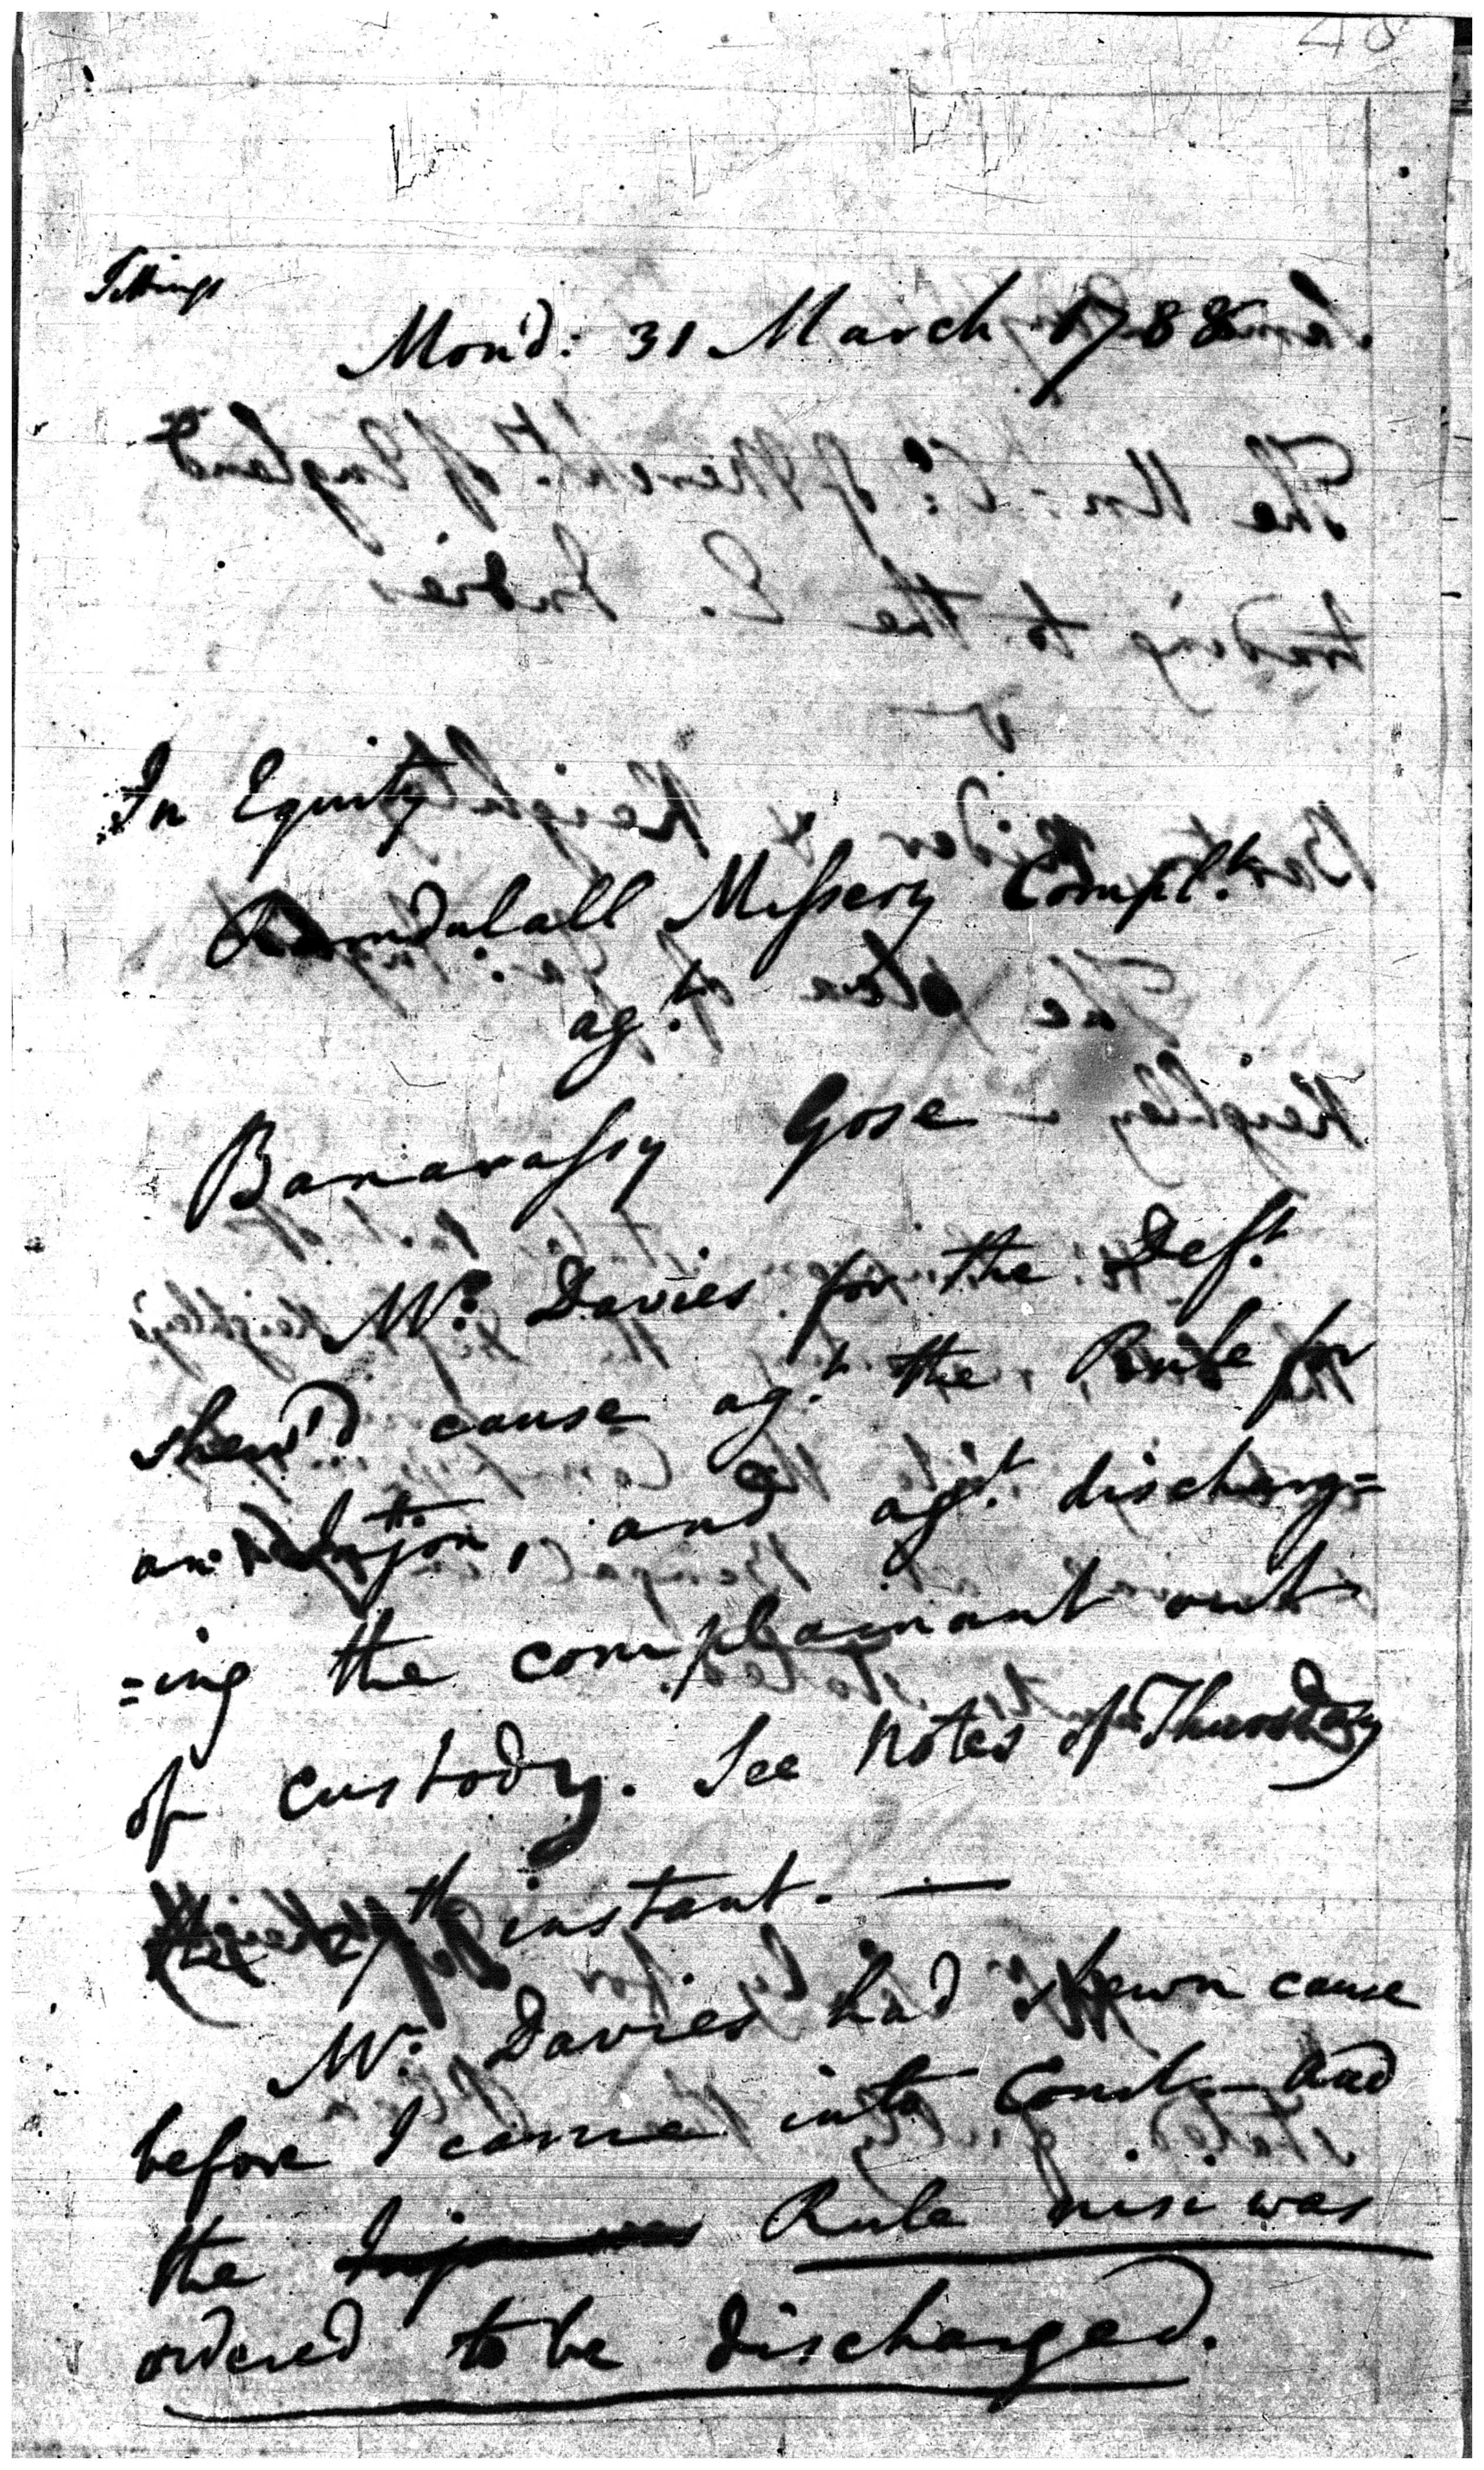 48
Sittings
Mond: 31 March 1788
In Equity
Ramdulall Missery Compl.t
ag.t
Banarassy Gose
Mr. Davies for the Def.t
shew'd cause ag.t the Rule for
an Injon, and ag.t discharg=
=ing the complainant out
of custody. See Notes of Thursday
the 27th instant. —
Mr. Davies had shewn cause
before I came into Court — and
the Rule nisi was
ordered to be discharged.